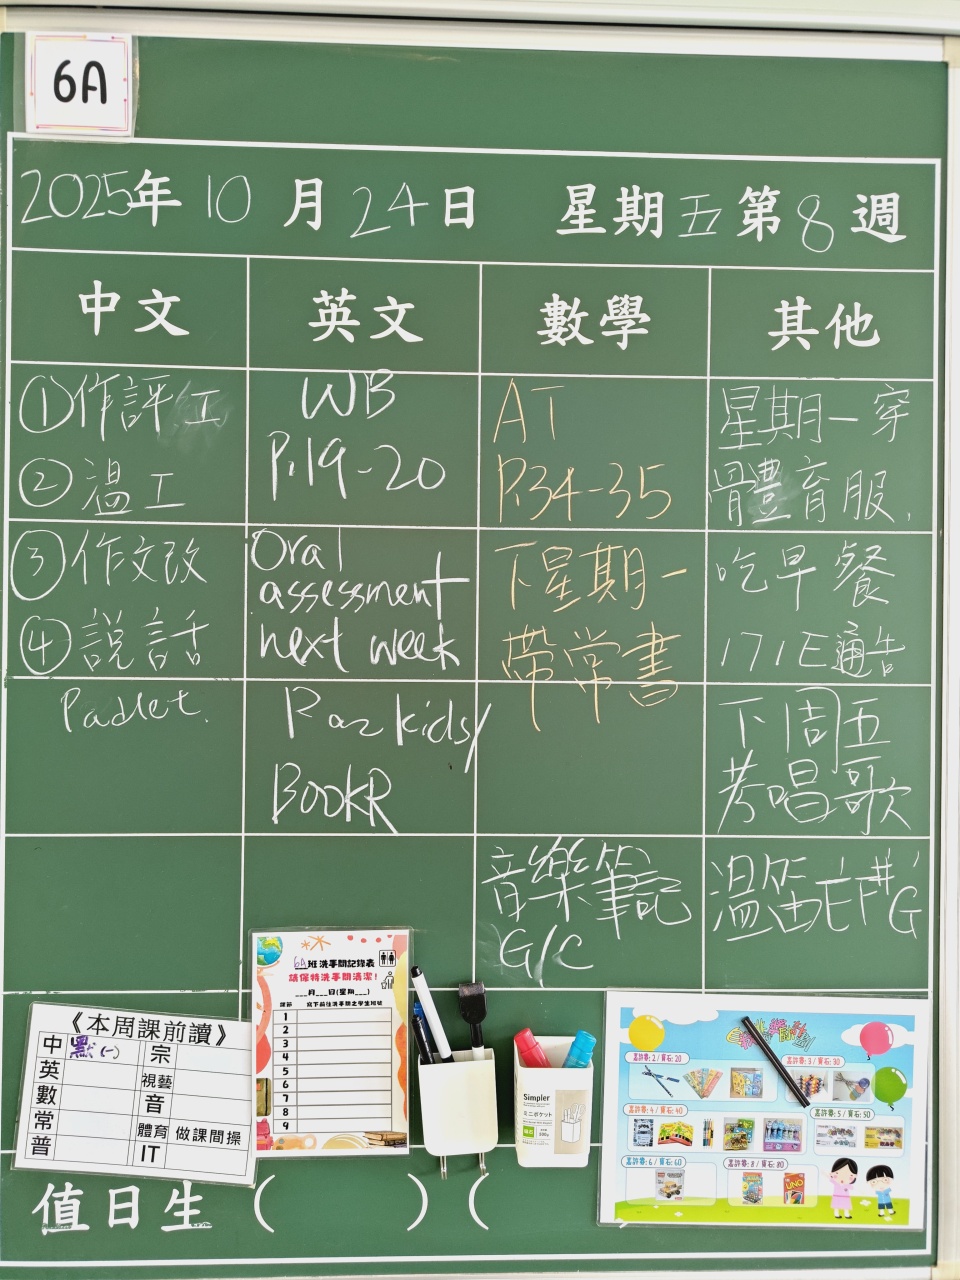 6A
2025年10月24日 星期五第8週
中文 英文 數學 其他
①作評工
②溫工
③作文改
④說話
Padlet.
WB
P.19-20
Oral
assessment
next week
Razkids/
BookR
AT
P.34-35
下星期一
帶常書
音樂筆記
G/C
星期一穿
體育服.
吃早餐
171E通告
下周五
考唱歌
溫笛
《本周課前讀》
中 默(一) 宗
英 視藝
數 音
常 體育 做課間操
普 IT
6A班洗手間記錄表
請保持洗手間清潔!
___月___日(星期___)
課節 寫下前往洗手間之學生班號
1
2
3
4
5
6
7
8
9
Simpler
ミニポケット
嘉許票:2/寶石:20
嘉許票:3/寶石:30
嘉許票:4/寶石:40
嘉許票:5/寶石:50
嘉許票:6/寶石:60
嘉許票:8/寶石:80
UNO
值日生( )(